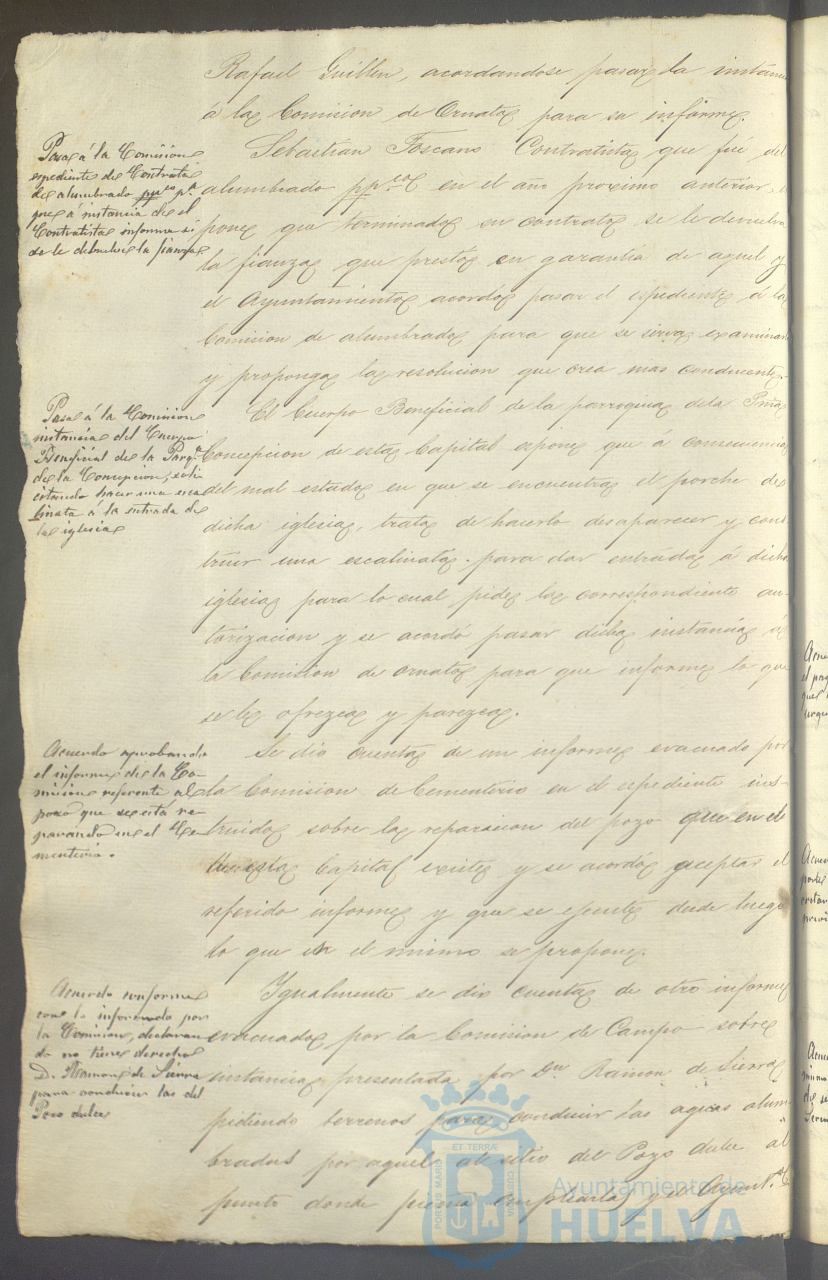 Rafael Guillen, acordandose pasar la instancia
á la Comision de Ornato para su informe.
Pasa á la Comision
espediente de Contrata
de alumbrado pp.co p.a
que á instancia de el
Contratista informe si
se le debuelve la fianza
Sebastian Toscano Contratista que fue del
alumbrado pp.co en el año proximo anterior, es
pone que terminado su contrato se le devuelva
la fianza que presto en garantia de aquel y
el Ayuntamiento acordo pasar el espediente á la
Comision de alumbrado para que se sirva examinar
y proponga la resolucion que crea mas conducente.
Pasa á la Comision
instancia del Cuerpo
Beneficial de la Parq.a
de la Concepcion, soli
citando hacer una esca
linata á la entrada de
la iglesia
El Cuerpo Beneficial de la parroquia dela Prma
Concepcion de esta Capital espone que á consecuencia
del mal estado en que se encuentra el porche de
dicha iglesia, trata de hacerlo desaparecer y cons
truir una escalinata para dar entrada á dicha
iglesia para lo cual pide la correspondiente au-
torizacion y se acordó pasar dicha instancia á
la Comision de ornato para que informe lo que
se le ofrezca y parezca.
Acuerdo aprobando
el informe de la Co-
mision referente al
pozo que se está re-
parando en el Ce-
menterio.
Se dio cuenta de un informe evacuado por
la Comision de Cementerio en el espediente ins-
truido sobre la reparacion del pozo que en el
de esta Capital existe y se acordó aceptar el
referido informe y que se ejecute desde luego
lo que en el mismo se propone.
Acuerdo conforme
con lo informado por
la Comision, declaran
do no tiene derecho
D. Ramon de Sierra
para conducir las del
Pozo dulce
Igualmente se dio cuenta de otro informe
evacuado por la Comision de Campo sobre
instancia presentada por Dn. Ramon de Sierra
pidiendo terrenos para conducir las aguas alum
bradas por aquel al sitio del Pozo dulce al
punto donde piensa emplearlas y el Ayunt.o
PORTUS MARIS
ET TERRÆ
CUSTODIA
Ayuntamiento de
HUELVA